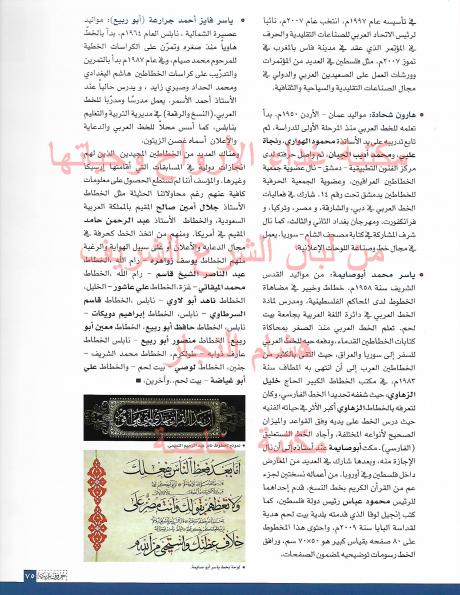 في تأسيسه عام ١٩٩٧م، انتخب عام ٢٠٠٧م، نائبا
لرئيس الاتحاد العربي للصناعات التقليدية والحرف
في المؤتمر الذي عقد في مدينة فاس بالمغرب في
تموز ٢٠٠٧م، مثل فلسطين في العديد من المؤتمرات
وورشات العمل على الصعيدين العربي والدولي في
مجال الصناعات التقليدية والسياحية والثقافية.
هارون شحادة: مواليد عمان - الأردن ١٩٥٠م. بدأ
تعلمه للخط العربي منذ المرحلة الأولى للدراسة، ثم
تابع تدريبه على يد الأساتذة محمود الهواري، ونجاة
علبي، ومحمد أديب الجبان، ثم واصل حرفته لدى
مركز الفنون التطبيقية - دمشق - نال عضوية جمعية
الخطاطين العراقيين، وعضوية الجمعية الحرفية
للخطاطين بدمشق تحت رقم ١٤. شارك في فعاليات
الخط العربي في دبي، والشارقة، و مصر، وتركيا، و
فرانكفورت، ومهرجان بغداد الثاني والثالث، كما نال
شرف المشاركة في كتابة مصحف الشام - سوريا. يعمل
في مجال خط وصناعة اللوحات الإعلانية.
ياسر محمد أبوصايمة: من مواليد القدس
الشريف سنة ١٩٥٨م. خطاط وخبير في مضاهاة
الخطوط لدى المحاكم الفلسطينية، ومدرس لمادة
الخط العربي في دائرة اللغة العربية بجامعة بيت
لحم. تعلم الخط العربي منذ الصغر بمحاكاة
كتابات الخطاطين القدماء، ودفعه حبه للخط العربي
للسفر إلى سوريا والعراق، حيث التقى بالكثير من
الخطاطين العرب إلى أن انتهى به المطاف سنة
١٩٨٣م، في مكتب الخطاط الكبير الحاج خليل
الزهاوي، حيث شغفه تحديدا الخط الفارسي، وكان
لتعرفه بالخطاط الزهاوي أكبر الأثر في حياته الفنية
حيث درس الخط على يديه وفق القواعد والميزان
الصحيح لأنواعه المختلفة، وأجاد الخط النستعليق
(الفارسي). مكث أبوصايمة عند أستاذه إلى أن نال
الإجازة منه، وبعدها شارك في العديد من المعارض
داخل فلسطين وفي أوروبا، من أعماله نسختين لجزء
عم من القرآن الكريم بخط النسخ، قدم إحداهما
للرئيس محمود عباس رئيس دولة فلسطين، كما
كتب إنجيل لوقا الذي قدمته بلدية بيت لحم هدية
لقداسة البابا سنة ٢٠٠٩م، واحتوى هذا المخطوط
على ٨٠ صفحه بقياس كبير هو ٥٠×٧٠ سم، ورافق
الخط رسومات توضيحيه لمضمون الصفحات.
ياسر فايز أحمد جرارعة (أبو ربيع): مواليد
عصيرة الشمالية، نابلس العام ١٩٦٤م. بدأ بالخط
هاوياً منذ صغره وتمرّن على الكراسات الخطية
للمرحوم محمد صيام، وفي عام ١٩٨٧م بدأ بالتمرين
والتدرّب على كراسات الخطاطين هاشم البغدادي
ومحمد الحداد وصبري زايد، و يدرس حالياً عند
الأستاذ أحمد الأسمر، يعمل مدرسًا ومدرّبًا للخط
العربي، (النسخ والرقعة) في مديرية التربية والتعليم
بنابلس، كما أسس محلاً للخط العربي والدعاية
والإعلان أسماه غصن الزيتون.
وهناك العديد من الخطاطين المجيدين الذين لهم
إنجازات دولية في المسابقات التي أقامتها إرسيكا
وغيرها. وللأسف أننا لم نستطع الحصول على معلومات
كافية عنهم رغم محاولاتنا الحثيثة مثل الخطاط
الأستاذ جلال أمين صالح المقيم بالمملكة العربية
السعودية، والخطاط الأستاذ عبد الرحمن حامد
الأمريكا. ومنهم من اتخذ الخط كحرفة في
مجال الدعايه والأعلان أو على سبيل الهواية والرغبة
منهم الخطاط يوسف زواهره - بيت لحم، الخطاط
عبد الناصر الشيخ قاسم - رام الله، الخطاط
محمد الميقاتي - غزة، الخطاط علي عاشور - الخليل،
الخطاط ناهد أبو لاوي - نابلس، الخطاط قاسم
السرطاوي - نابلس، الخطاط إبراهيم دويكات -
نابلس، الخطاط حافظ أبو ربيع، الخطاط معين أبو
ربيع، الخطاط منصور أبو ربيع - نابلس، الخطاط
عارف ذوابه - طولكرم، الخطاط محمد الشريف -
جنين، الخطاط لوصي - بيت لحم - والخطاط علي
أبو غياضة - بيت لحم.. وآخرين.
نموذج لخطوط نادر عبد الرحيم التميمي
إنا بعد فعظ الناس بفعلك
ولا تعظهم بقولك واستحي من الله
لوحة بخط ياسر أبو صايمة.
٧٥
حروف عربية
هشام النجار